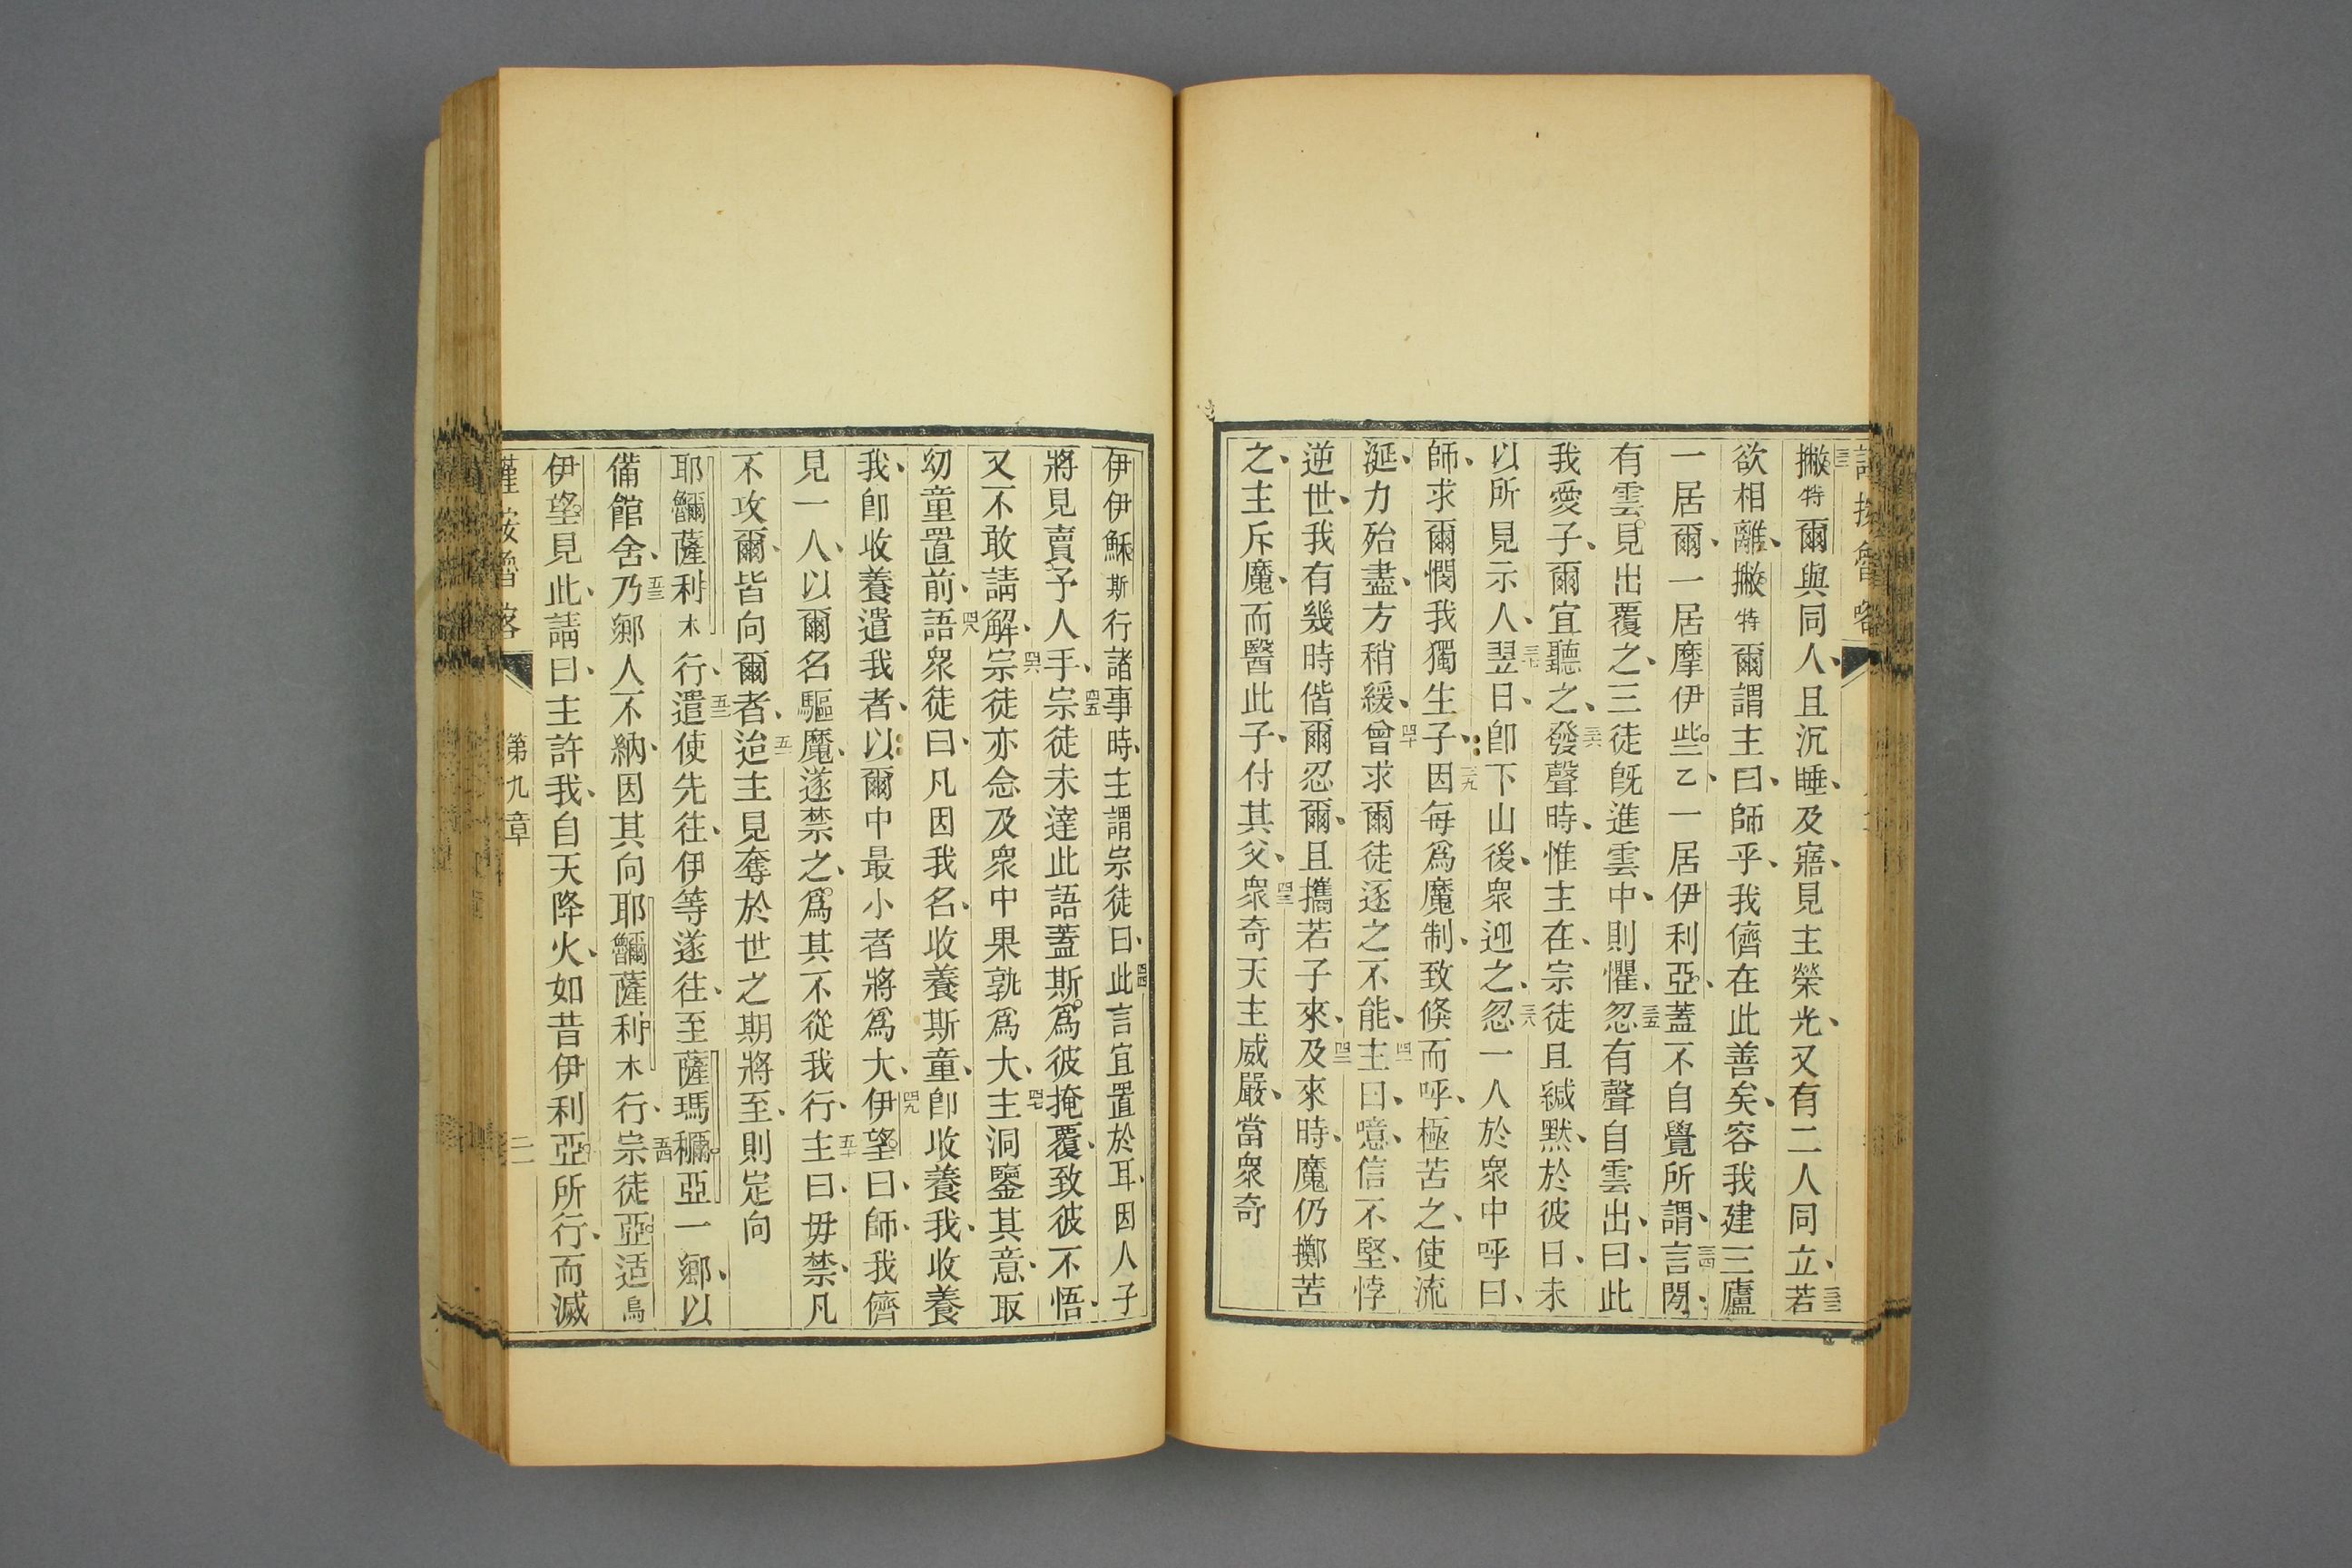 撇特爾與同人、且沉睡、及寤、見主榮光、又有二人同立、三三若
欲相離、撇特爾謂主曰、師乎、我儕在此善矣、容我建三廬
一居爾、一居摩伊些乙、一居伊利亞、蓋不自覺所謂、三四言閒、
有雲見出覆之、三徒既進雲中、則懼、三五忽有聲自雲出、曰、此
我愛子、爾宜聽之、三六發聲時、惟主在、宗徒且緘默、於彼日、未
以所見示人、三七翌日、卽下山後、衆迎之、三八忽一人於衆中呼曰、
師、求爾憫我獨生子、三九因每爲魔制、致倐而呼、極苦之、使流
涎、力殆盡、方稍緩、四十曾求爾徒逐之不能、四一主曰、噫、信不堅、悖
逆世、我有幾時偕爾忍爾、且攜若子來、四二及來時、魔仍擲苦
之、主斥魔、而醫此子、付其父、四三衆奇天主威嚴、當衆奇
伊伊穌斯行諸事時、主謂宗徒曰、四四此言宜置於耳、因人子
將見賣予人手、四五宗徒未達此語蓋斯爲彼掩覆、致彼不悟、
又不敢請解、四六宗徒亦念及衆中果孰爲大、四七主洞鑒其意、取
幼童置前、四八語衆徒曰、凡因我名、收養斯童、卽收養我、收養
我、卽收養遣我者、以爾中最小者將爲大、四九伊望曰、師、我儕
見一人、以爾名驅魔、遂禁之、爲其不從我行、五十主曰、毋禁、凡
不攻爾、皆向爾者、五一迨主見奪於世之期將至、則定向
耶䥯薩利木行、五二遣使先往、伊等遂往、至薩瑪穪亞一鄉、以
備館舍、五三乃鄉人不納、因其向耶䥯薩利木行、五四宗徒亞适烏
伊望見此、請曰、主許我、自天降火、如昔伊利亞所行、而滅
第九章